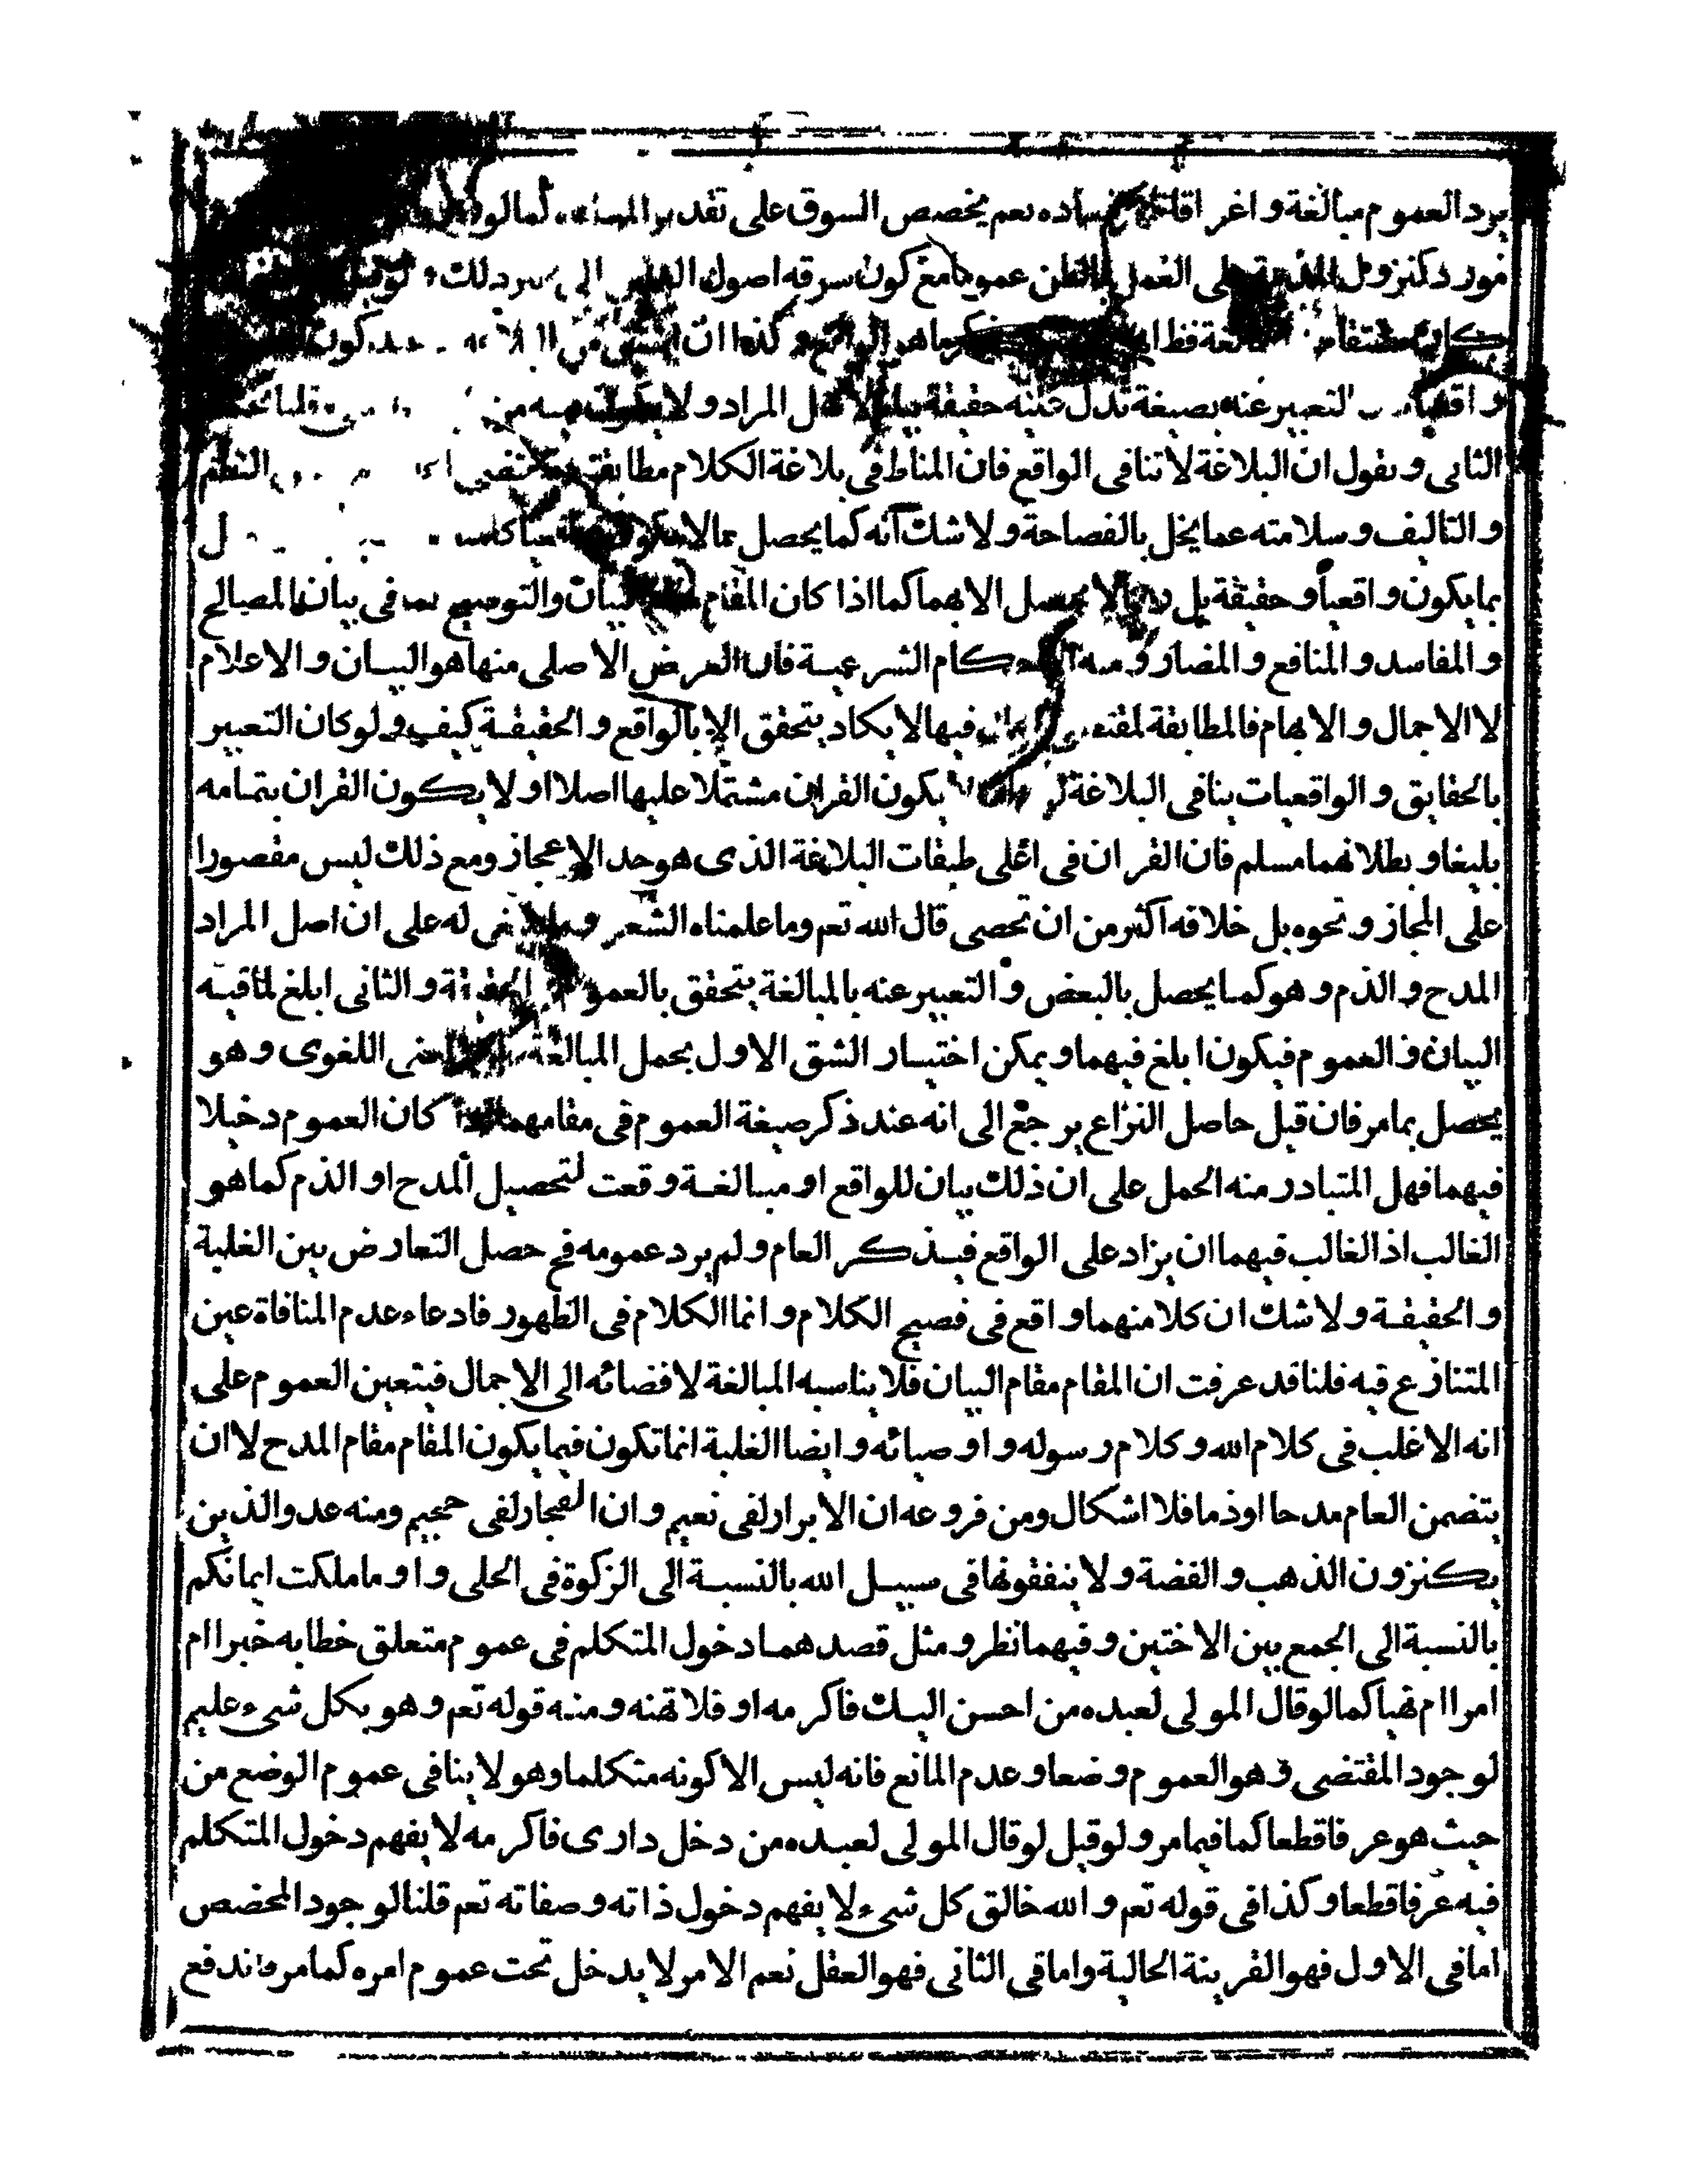 يرد العموم مبالغة و اغراقا فساده نعم يخصص السوق على تقدير لما لو
على العمل بالظن عموما مع كون سوقه اصول الى
كذا ان كون
التعبير عنه بصيغة تدل عليه حقيقة المراد و لا من
الثانى و نقول ان البلاغة لا تنافى الواقع فان المناط فى بلاغة الكلام مطابقته النظم
و التاليف و سلامته عما يخل بالفصاحة و لا شك انه كما يحصل بما لا يكون
بما يكون و اقعيا و حقيقة بل لا يحصل الا بهما كما اذا كان المقام البيان و التوضيح فى بيان المصالح
و المفاسد و المنافع و المضار و منه الاحكام الشرعية فان الغرض الاصلى منها هو البيـان و الاعلام
لا الاجمال و الابهام فالمطابقة فيها لا يكاد يتحقق الا بالواقع و الحقيقـة كيف و لو كان التعبير
بالحقايق و الواقعيات ينافى البلاغة يكون القران مشتملا عليها اصلا او لا يكون القران بتمامه
بليغا و بطلانهما مسلم فان القران فى اعلى طبقات البلاغة الذى هو حد الاعجاز و مع ذلك ليس مقصورا
على المجاز و نحوه بل خلافه اكثر من ان تحصى قال الله تعم و ما علمناه الشعر و ما ينبغى له على ان اصل المراد
المدح و الذم و هو كما يحصل بالبعض و التعبير عنه بالمبالغة يتحقق بالعموم الحقيقة و الثانى ابلغ لما فيـه
البيان و العموم فيكون ابلغ فيهما و يمكن اختيـار الشق الاول بحمل المبالغة المعنى اللغوى و هو
يحصل بما مر فان قيل حاصل النزاع يرجع الى انه عند ذكر صيغة العموم فى مقامهما اذا كان العموم دخيلا
فيهما فهل المتبادر منه الحمل على ان ذلك بيان للواقع او مبـالغـة وقعت لتحصيل المدح او الذم كما هو
الغالب اذ الغالب فيهما ان يزاد على الواقع فيـذكر العام و لم يرد عمومه فح حصل التعارض بين الغلبة
و الحقيقـة و لا شك ان كلا منهما و اقع فى فصيح الكلام و انما الكلام فى الظهور فادعاء عدم المنافاة عين
المتنازع فيه قلنا قد عرفت ان المقام مقام البيان فلا يناسبه المبالغة لافضائه الى الاجمال فيتعين العموم على
انه الاغلب فى كلام الله و كلام رسوله و اوصيائه و ايضا الغلبة انما تكون فيما يكون المقام مقام المدح لا ان
يتضمن العام مدحا او ذما فلا اشكال و من فروعه ان الابرار لفى نعيم و ان الفجار لفى جحيم و منه عد و الذين
يكنزون الذهب و الفضة و لا ينفقونها فى سبيـل الله بالنسبـة الى الزكوة فى الحلى و او ما ملكت ايمانكم
بالنسبة الى الجمع بين الاختين و فيهما نظر و مثل قصد هما دخول المتكلم فى عموم متعلق خطابه خبرا ام
امرا ام نهيا كما لو قال المولى لعبده من احسن اليـك فاكرمه او فلا تهنه و منـه قوله تعم و هو بكل شىء عليم
لوجود المقتضى و هو العموم وضعا و عدم المانع فانه ليس الا كونه متكلما و هو لا ينافى عموم الوضع من
حيث هو عرفا قطعا كما فيما مر و لو قيل لو قال المولى لعبـده من دخل دارى فاكرمه لا يفهم دخول المتكلم
فيه عرفا قطعا و كذا فى قوله تعم و الله خالق كل شىء لا يفهم دخول ذاته و صفاته تعم قلنا لوجود المخصص
اما فى الاول فهو القرينة الحالية و اما فى الثانى فهو العقل نعم الامر لا يدخل تحت عموم امره كما مر فاندفع